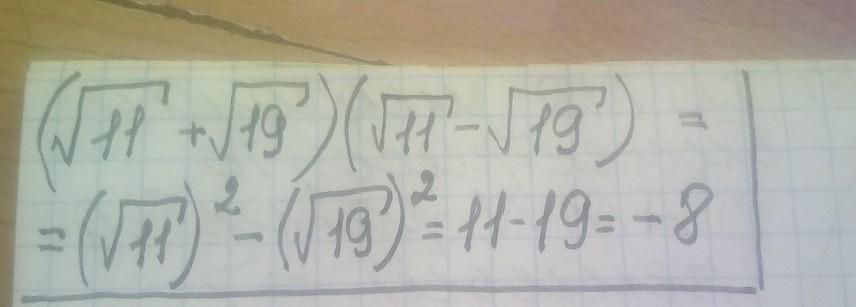 (√11 + √19)(√11 - √19) =
= (√11)² - (√19)² = 11 - 19 = - 8